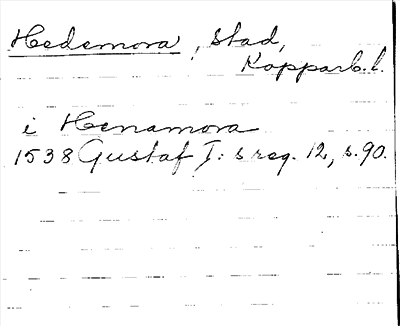 Hedemora, Stad,
Kopparb.l.
i Henamora
1538 Gustaf I:s reg. 12, s.90.